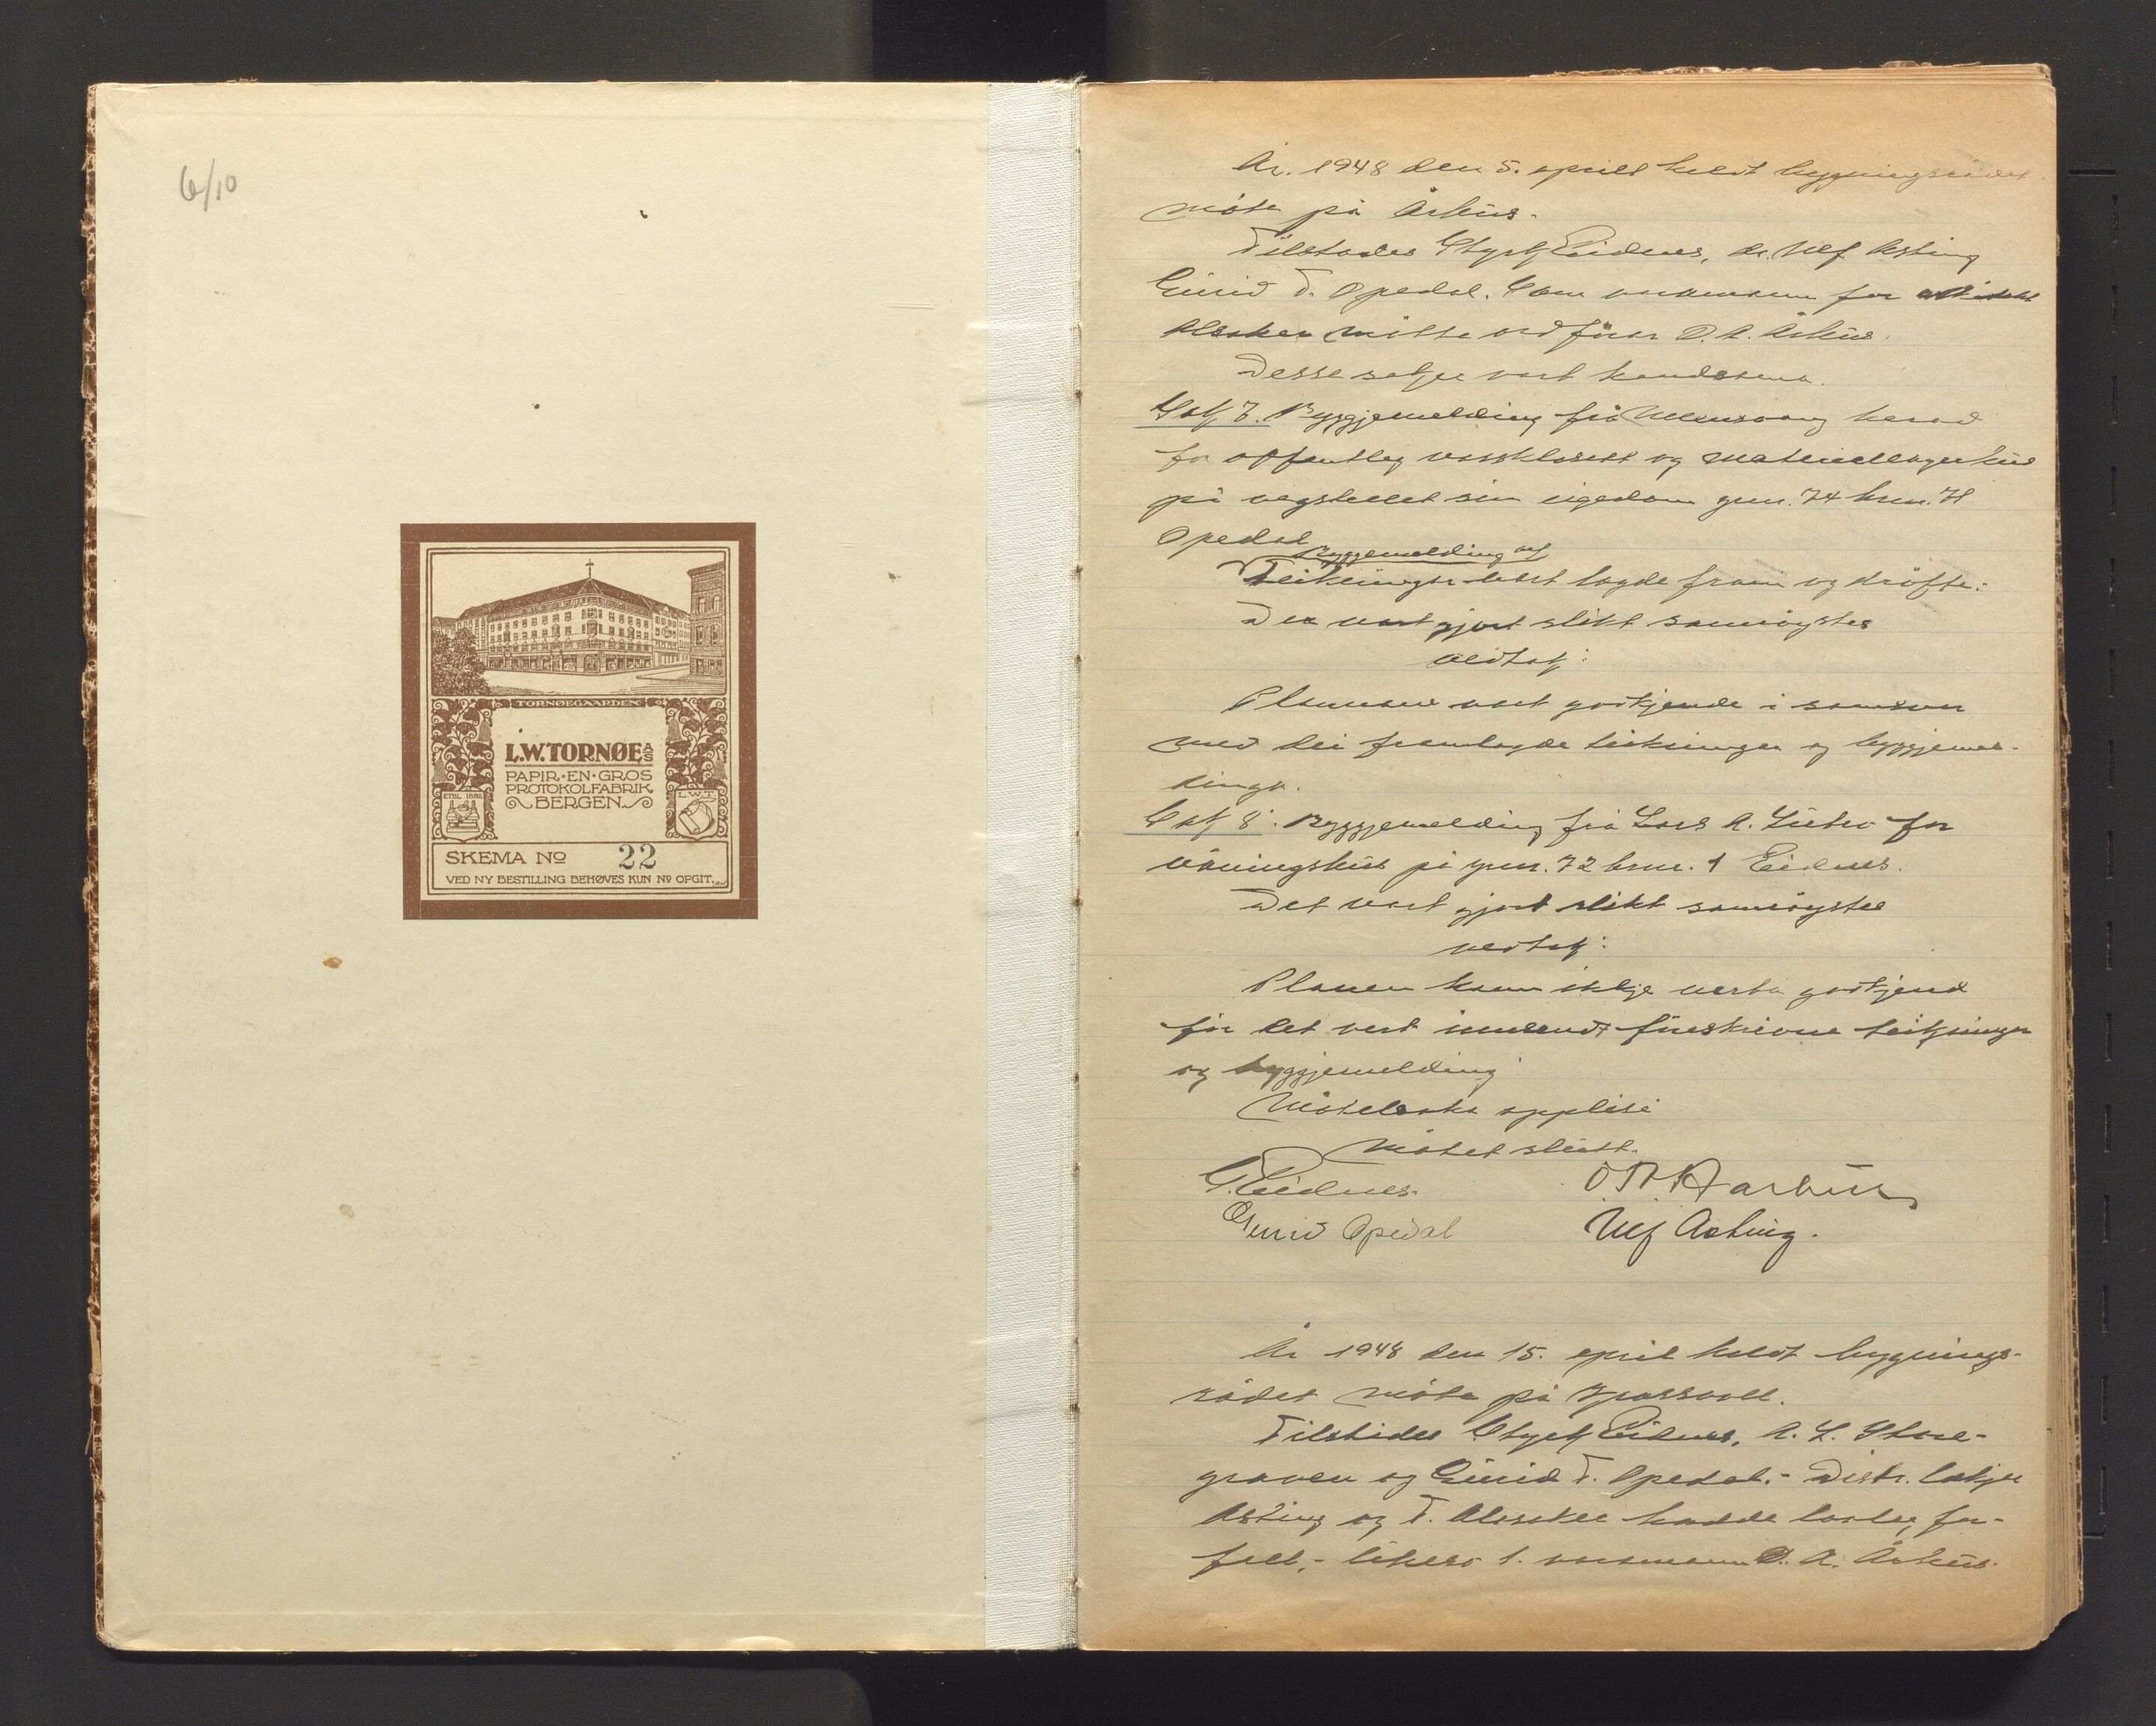 6/10
TORNØEGAARDEN
L.W. TORNØE A/S
PAPIR·EN·GROS
PROTOKOLFABRIK
BERGEN
ETBL. 1882
L.W.T.
SKEMA Nº 22
VED NY BESTILLING BEHØVES KUN Nº OPGIT.
År. 1948 den 5. april heldt bygningsrådet
møte på Århus.
Tilstades Styrk Eidnes, dr. Ulf Asting
Gurid T. Opedal. Som varamann for
Alsaker møtte ordførar O. A. Århus.
Desse saker vart handsama.
Sak 7. Byggjemelding frå Ullensvang herad
for offentleg vassklosett og materiellagerhus
på vegstellet sin eigedom gnr. 74 brnr. 71
Opedal
Byggjemelding og
Teikningar vart lagde fram og drøfte.
Det vart gjort slikt samrøystes
vedtak:
Planane vart godkjende i samsvar
med dei framlagde teikningar og byggjemel-
dinga.
Sak 8. Byggjemelding frå Lars A. Lutro for
våningshus på gnr. 72 brnr. 1 Eidnes.
Det vart gjort slikt samrøystes
vedtak:
Planen kann ikkje verta godkjend
før det vert innsendt føreskrivne teikningar
og byggjemelding
Møteboka opplesi
Møtet slutt.
S. Eidnes. O. A. Aarhus
Gurid Opedal Ulf Asting.
År 1948 den 15. april heldt bygnings-
rådet møte på Grassvoll.
Tilstades Styrk Eidnes, A. L. Stare-
graven og Gurid T. Opedal. - Distr. lækjar
Asting og T. Alsaker hadde lovleg for-
fall, - likeso 1. varamann O. A. Århus.